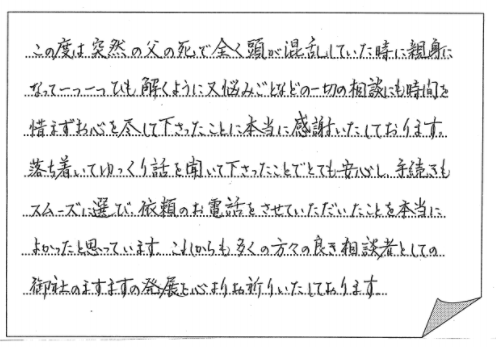 この度は突然の父の死で全く頭が混乱していた時に親身に
なって一つ一つひも解くように又悩みごとなどの一切の相談にも時間を
惜まずお心を尽して下さったことに本当に感謝いたしております。
落ち着いてゆっくり話を聞いて下さったことでとても安心し、手続きも
スムーズに選び、依頼のお電話をさせていただいたことを本当に
よかったと思っています。これからも多くの方々の良き相談者としての
御社のますますの発展を心よりお祈りいたしております。